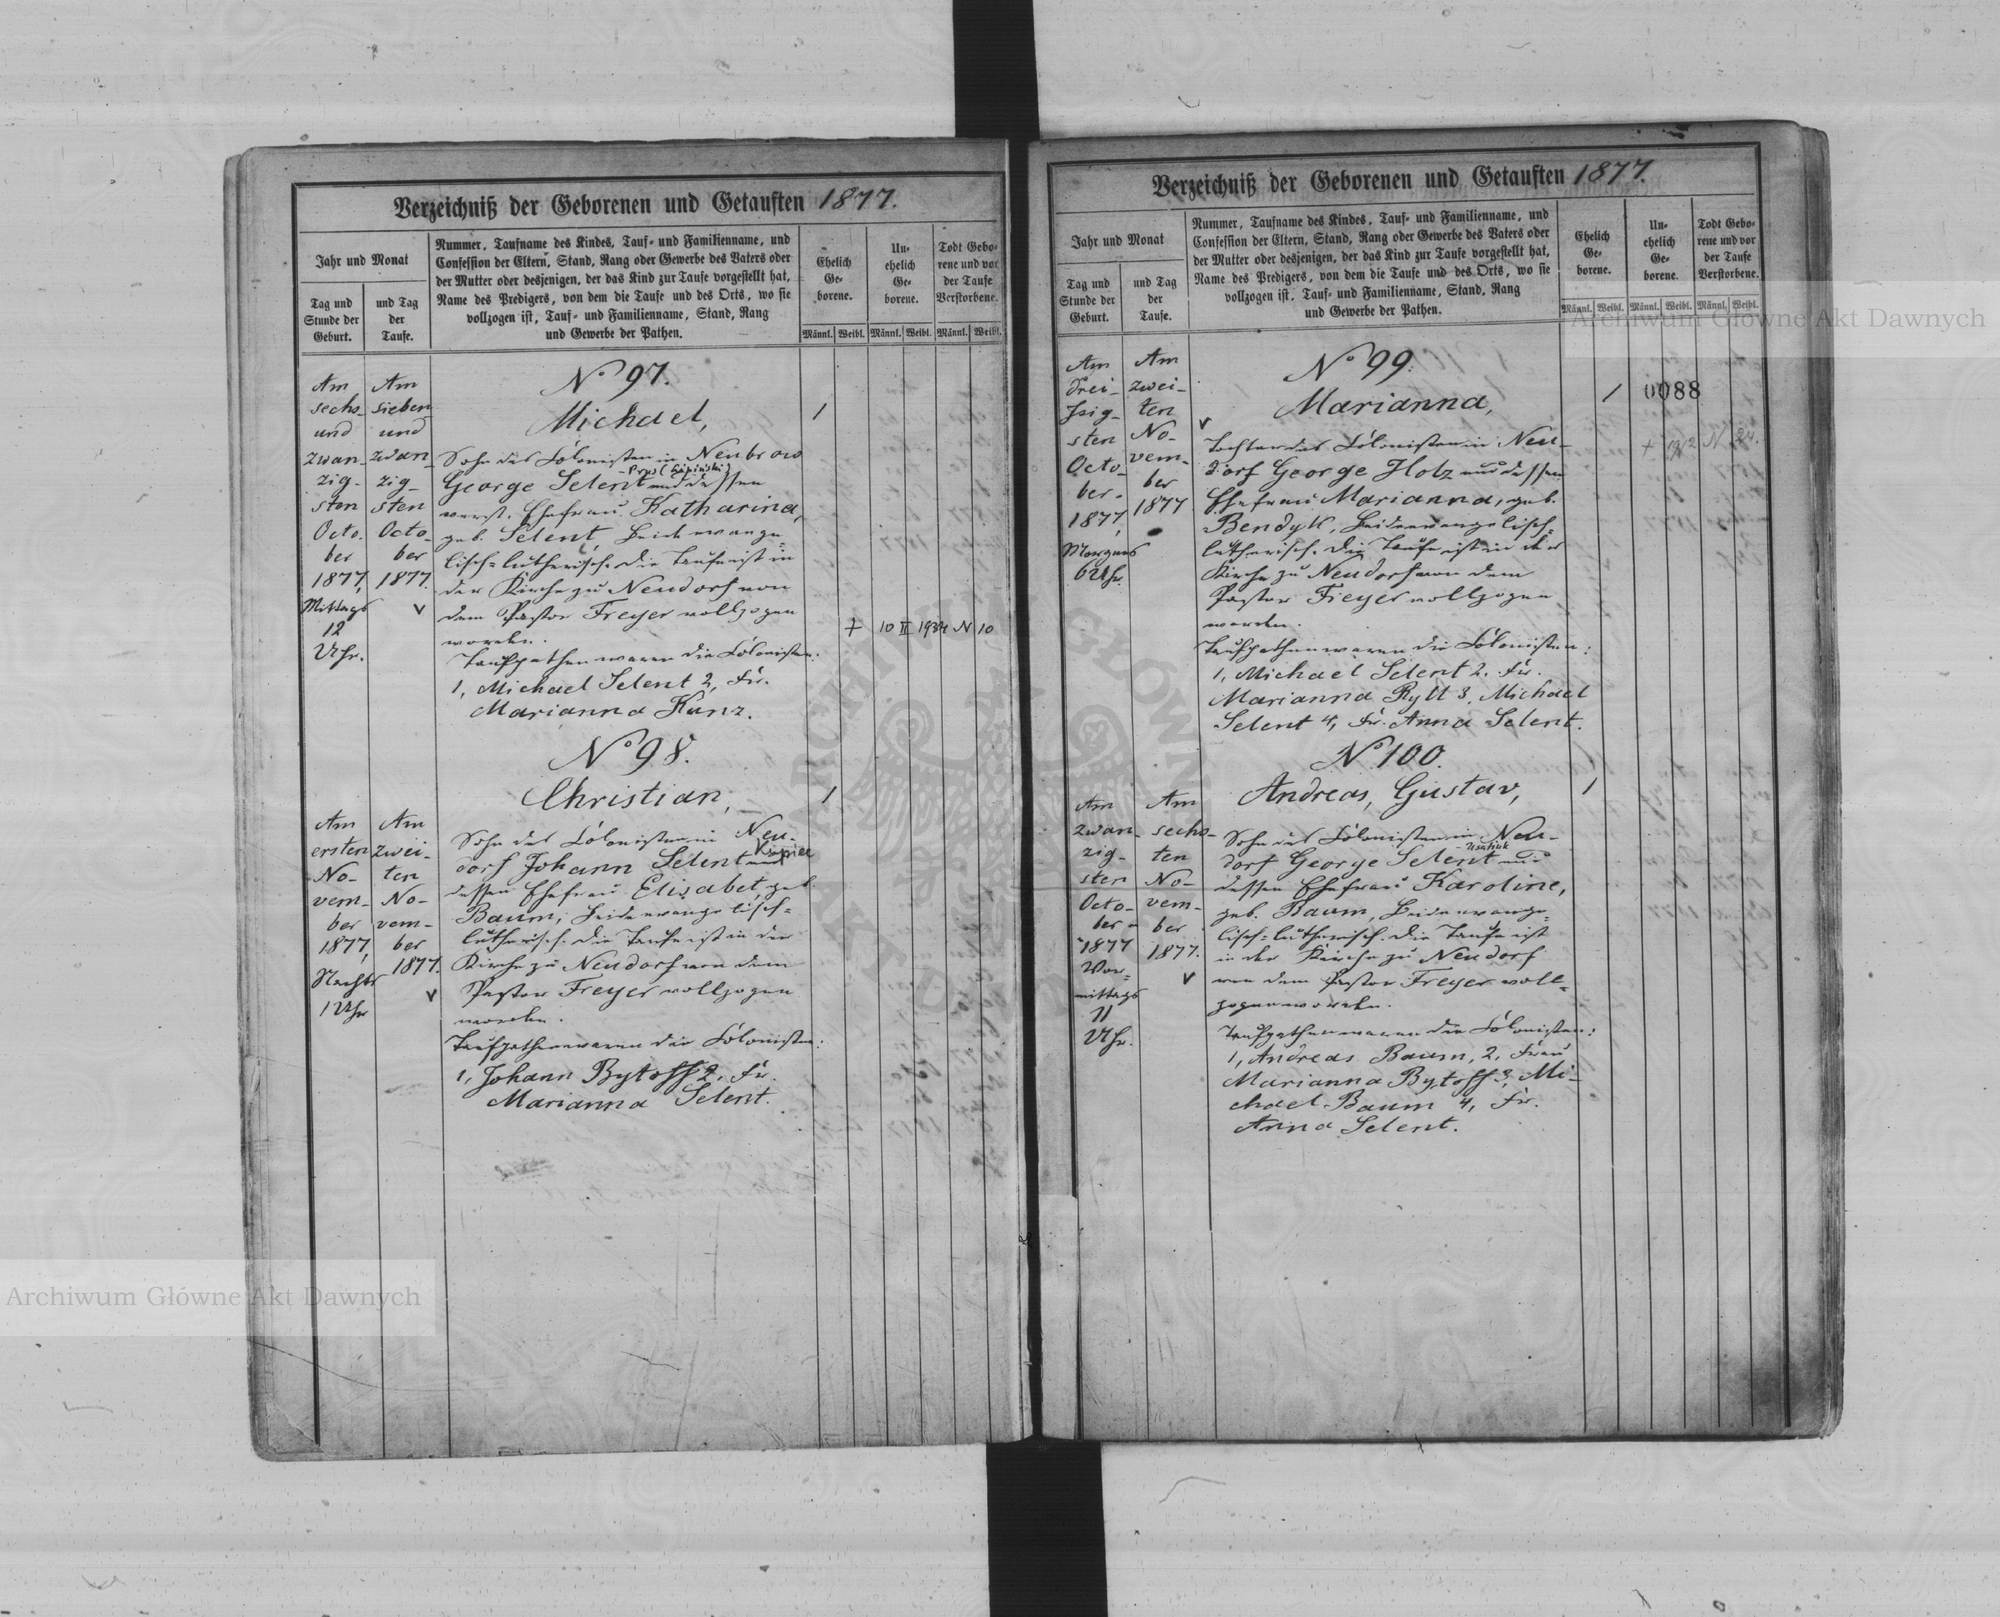 Verzeichniß der Geborenen und Getauften 1877.
Jahr und Monat
Tag und
Stunde der
Geburt.
und Tag
der
Taufe.
Nummer, Taufname des Kindes, Tauf- und Familienname, und
Confession der Eltern, Stand, Rang oder Gewerbe des Vaters oder
der Mutter oder desjenigen, der das Kind zur Taufe vorgestellt hat,
Name des Predigers, von dem die Taufe und des Orts, wo sie
vollzogen ist, Tauf- und Familienname, Stand, Rang
und Gewerbe der Pathen.
Ehelich
Ge-
borene.
Un-
ehelich
Ge-
borene.
Todt Gebo-
rene und vor
der Taufe
Verstorbene.
Männl. Weibl. Männl. Weibl. Männl. Weibl.
Am
sechs-
und
zwan-
zig-
sten
Octo-
ber
1877,
Mittags
12
Uhr.
Am
sieben
und
zwan-
zig-
sten
Octo-
ber
1877.
No 97.
Michael,
Sohn des Colonisten in Neubrow
- Prus (Łapiński)
George Selent und dessen
verst. Ehefrau Katharina,
geb. Selent, beide evange-
lisch-lutherisch. Die Taufe ist in
der Kirche zu Neudorf von
dem Pastor Freyer vollzogen
worden.
Taufpathen waren die Colonisten:
1, Michael Selent 2, Fr.
Marianna Kunz.
1
+ 10 II 1934 N 10
No 98.
Christian,
1
Am
ersten
No-
vem-
ber
1877,
Nachts
1 Uhr
Am
zwei-
ten
No-
vem-
ber
1877.
Sohn des Colonisten in Neu-
dorf Johann Selent und
dessen Ehefrau Elisabet, geb.
Baum, beide evangelisch-
lutherisch. Die Taufe ist in der
Kirche zu Neudorf von dem
Pastor Freyer vollzogen
worden.
Taufpathen waren die Colonisten:
1, Johann Bytoff 2, Fr.
Marianna Selent.
Verzeichniß der Geborenen und Getauften 1877.
Jahr und Monat
Tag und
Stunde der
Geburt.
und Tag
der
Taufe.
Nummer, Taufname des Kindes, Tauf- und Familienname, und
Confession der Eltern, Stand, Rang oder Gewerbe des Vaters oder
der Mutter oder desjenigen, der das Kind zur Taufe vorgestellt hat,
Name des Predigers, von dem die Taufe und des Orts, wo sie
vollzogen ist, Tauf- und Familienname, Stand, Rang
und Gewerbe der Pathen.
Ehelich
Ge-
borene.
Un-
ehelich
Ge-
borene.
Todt Gebo-
rene und vor
der Taufe
Verstorbene.
Männl. Weibl. Männl. Weibl. Männl. Weibl.
Archiwum Główne Akt Dawnych
Am
drei-
ßig-
sten
Octo-
ber
1877,
Morgens
6 Uhr.
Am
zwei-
ten
No-
vem-
ber
1877
No 99.
Marianna,
1
0088
Tochter des Colonisten in Neu-
dorf George Holz und dessen
Ehefrau Marianna, geb.
Bendyk, beide evangelisch-
lutherisch. Die Taufe ist in der
Kirche zu Neudorf von dem
Pastor Freyer vollzogen
worden.
Taufpathen waren die Colonisten:
1, Michael Selent 2. Fr.
Marianna Rytt 3, Michael
Selent 4, Fr. Anna Selent.
No 100.
Andreas, Gustav,
1
Am
zwan-
zig-
sten
Octo-
ber
1877
Vor-
mittags
11
Uhr.
Am
sechs-
ten
No-
vem-
ber
1877.
Sohn des Colonisten in Neu-
dorf George Selent und
dessen Ehefrau Karoline,
geb. Baum, beide evange-
lisch-lutherisch. Die Taufe ist
in der Kirche zu Neudorf
von dem Pastor Freyer voll-
zogen worden.
Taufpathen waren die Colonisten:
1, Andreas Baum, 2, Frau
Marianna Bytoff 3, Mi-
chael Baum 4, Fr.
Anna Selent.
Archiwum Główne Akt Dawnych